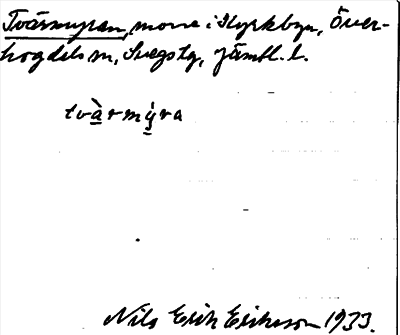 Tvärmyran, mosse i Kyrkbyn, Över-
hogdals sn, Svegs tg, Jämtl. l.
tvàrmy̕ra
Nils Erik Eriksson 1933.